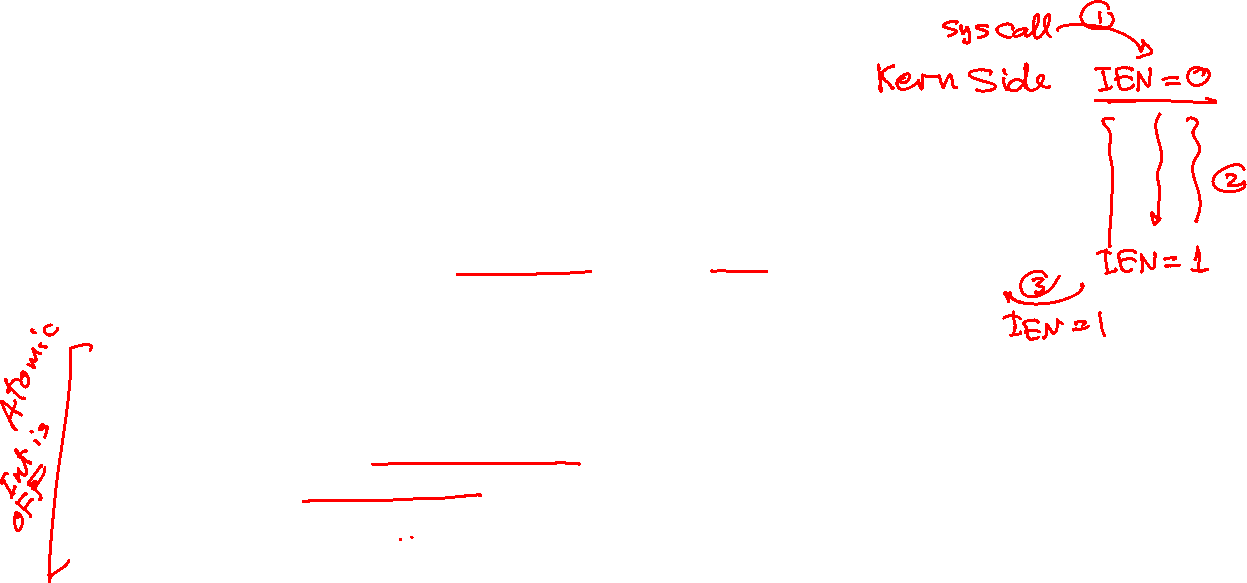 syscall 1
Kern Side IEN=0
2
IEN=1
3
IEN=1
Atomic
Int is
OFF